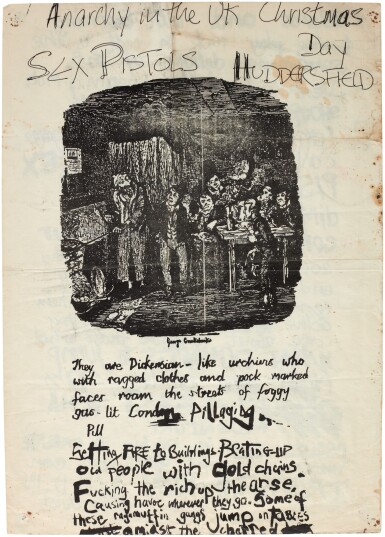 Anarchy in the UK Christmas
Day
SEX PISTOLS HUDDERSFIELD
George Cruikshank
They are Dickensian - like urchins who
with ragged clothes and pock marked
faces roam the streets of foggy
gas-lit London Pillaging
Pill
Setting FIRE to Buildings BEATING-UP
old people with Gold chains.
Fucking the rich up the arse.
Causing havoc wherever they go. Some of
these ragamuffin gangs jump on tables
amidst the charred